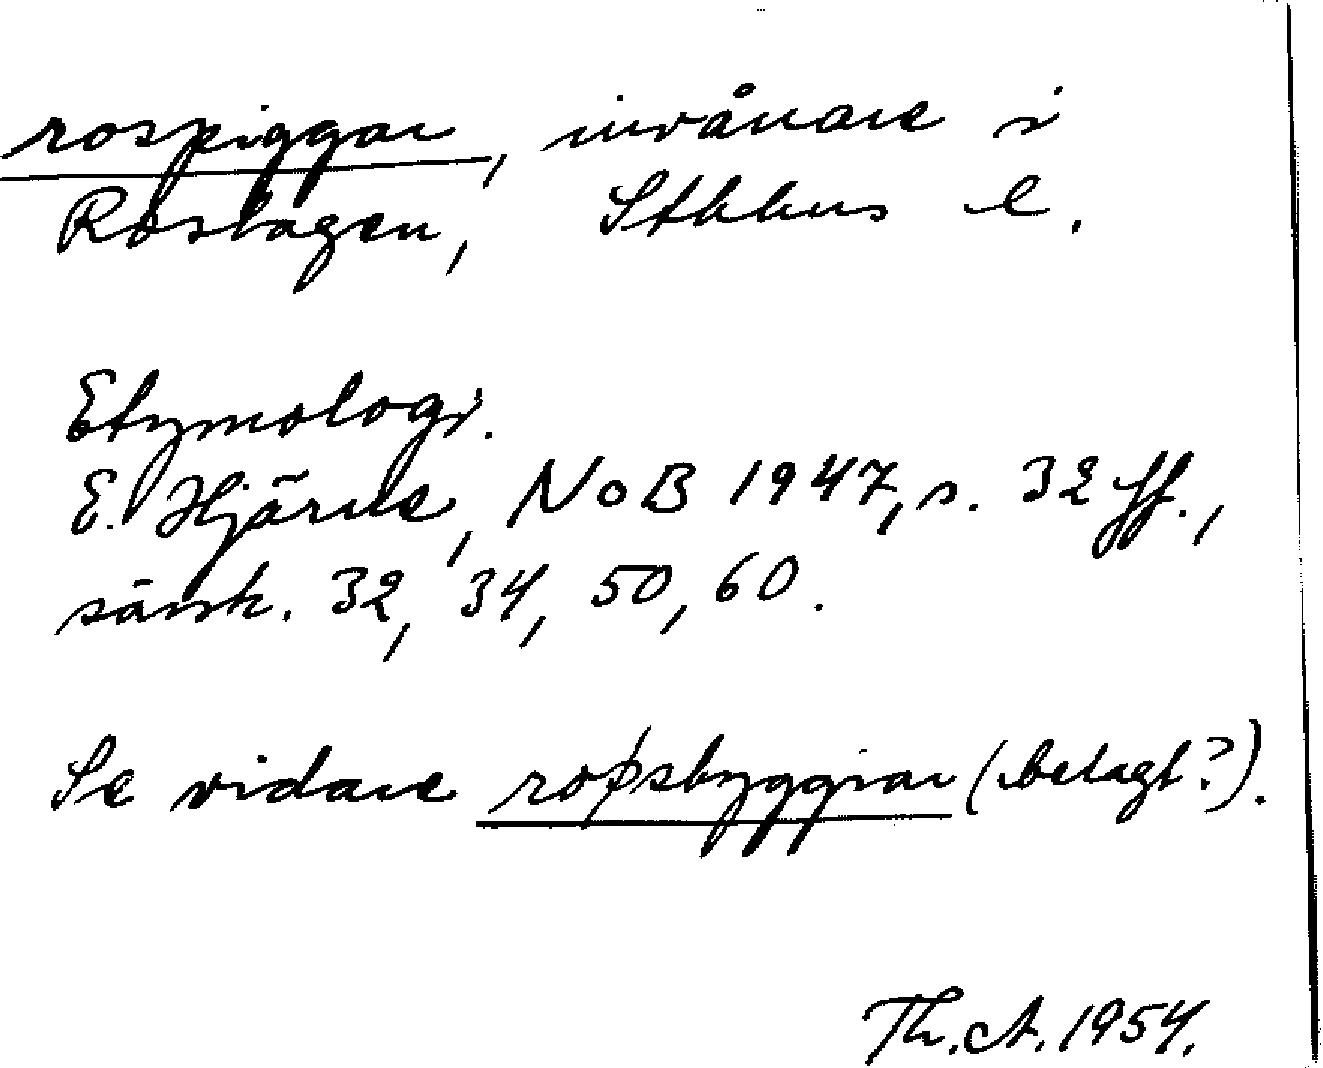 rospiggar, invånare i
Roslagen, Sthhms l.
Etymologi.
E. Hjärne, NoB 1947, s. 32 ff.,
särsk. 32, 34, 50, 60.
Se vidare roþsbyggiar (belagt?).
Th. A. 1954.